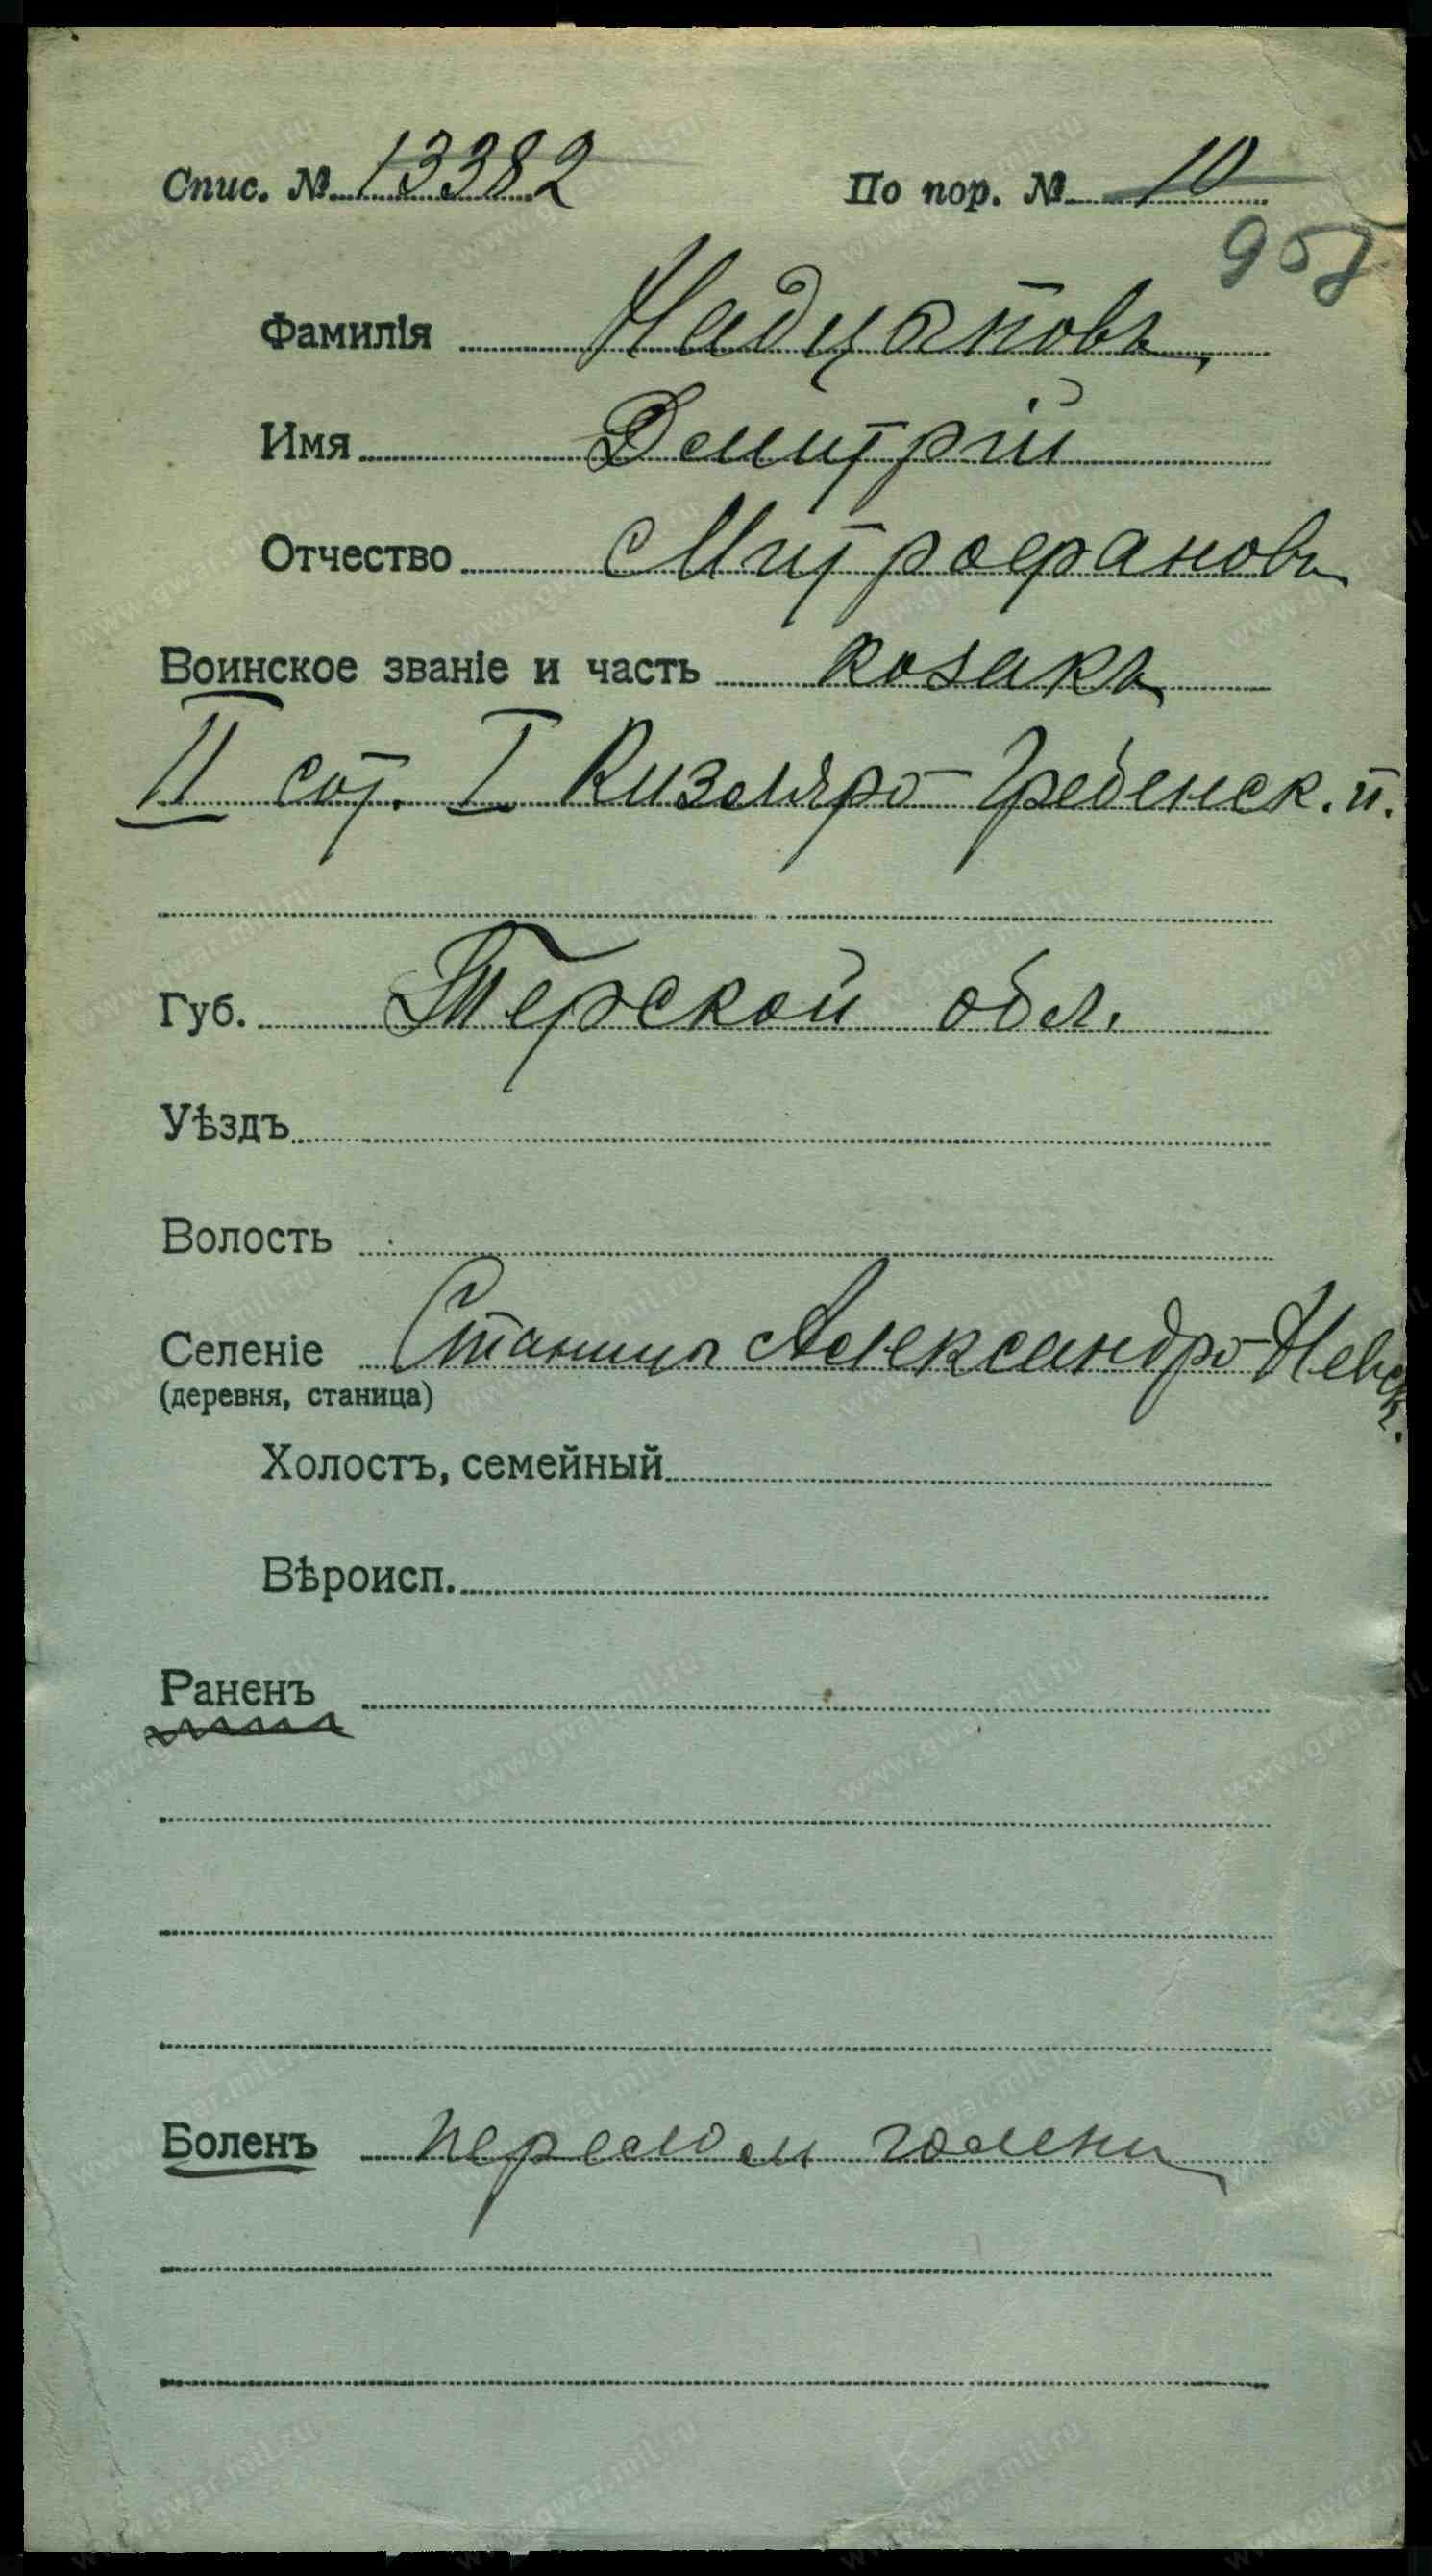 Спис. № 13382 По пор. № 10
958
Фамилія Надцановъ
Имя Дмитрій
Отчество Митрофановъ
Воинское званіе и часть козакъ
II сот. I Кизляро-Гребенск. п.
Губ. Терской обл.
Уѣздъ
Волость
Селеніе Станица Александро-Невск.
(деревня, станица)
Холостъ, семейный
Вѣроисп.
Раненъ
Боленъ перелом голени